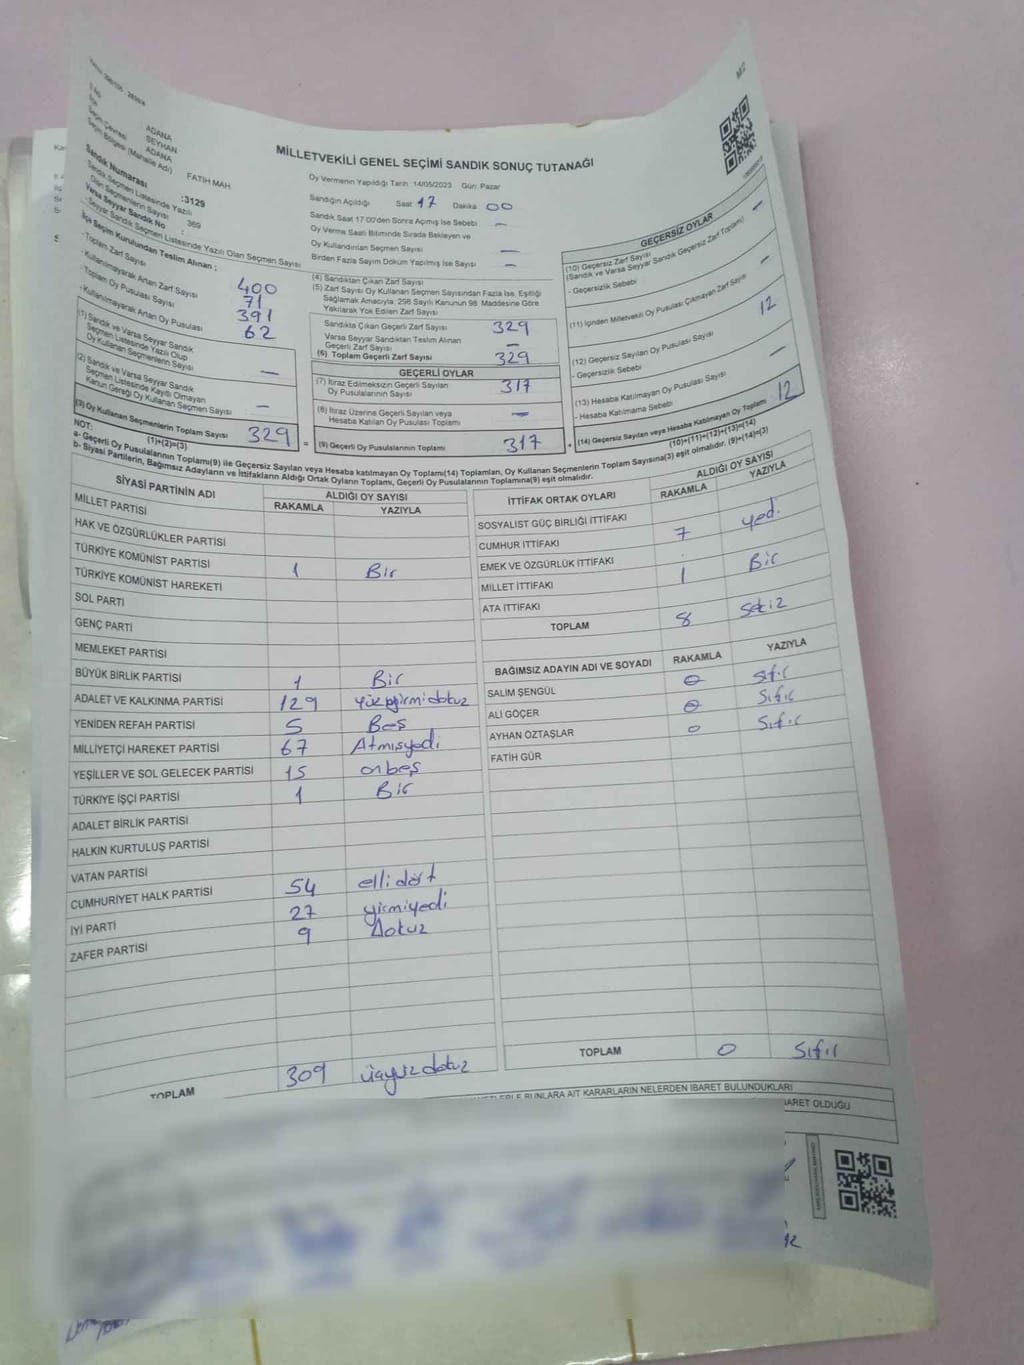 ADANA
SEYHAN
Seçim Çevresi ADANA
Seçim Bölgesi (Mahalle Adı) FATİH MAH
Sandık Numarası :3129
Sandık Seçmen Listesinde Yazılı
Olan Seçmenlerin Sayısı 369
Varsa Seyyar Sandık No :
- Seyyar Sandık Seçmen Listesinde Yazılı Olan Seçmen Sayısı
MİLLETVEKİLİ GENEL SEÇİMİ SANDIK SONUÇ TUTANAĞI
Oy Vermenin Yapıldığı Tarih: 14/05/2023 Gün: Pazar
Sandığın Açıldığı Saat 17 Dakika 00
Sandık Saat 17.00'den Sonra Açımış İse Sebebi —
Oy Verme Saati Bitiminde Sırada Bekleyen ve
Oy Kullandırılan Seçmen Sayısı —
Birden Fazla Sayım Döküm Yapılmış İse Sayısı —
İlçe Seçim Kurulundan Teslim Alınan ;
- Toplam Zarf Sayısı 400
- Kullanılmayarak Artan Zarf Sayısı 71
- Toplam Oy Pusulası Sayısı 391
- Kullanılmayarak Artan Oy Pusulası 62
(1) Sandık ve Varsa Seyyar Sandık
Seçmen Listesinde Yazılı Olup
Oy Kullanan Seçmenlerin Sayısı —
(2) Sandık ve Varsa Seyyar Sandık
Seçmen Listesinde Kayıtlı Olmayan
Kanun Gereği Oy Kullanan Seçmen Sayısı —
(3) Oy Kullanan Seçmenlerin Toplam Sayısı 329
(1)+(2)=(3)
(4) Sandıktan Çıkan Zarf Sayısı
(5) Zarf Sayısı Oy Kullanan Seçmen Sayısından Fazla İse, Eşitliği
Sağlamak Amacıyla, 298 Sayılı Kanunun 98. Maddesine Göre
Yakılarak Yok Edilen Zarf Sayısı
Sandıkta Çıkan Geçerli Zarf Sayısı 329
Varsa Seyyar Sandıktan Teslim Alınan
Geçerli Zarf Sayısı —
(6) Toplam Geçerli Zarf Sayısı 329
GEÇERLİ OYLAR
(7) İtiraz Edilmeksizin Geçerli Sayılan
Oy Pusulalarının Sayısı 317
(8) İtiraz Üzerine Geçerli Sayılan veya
Hesaba Katılan Oy Pusulası Toplamı —
= (9) Geçerli Oy Pusulalarının Toplamı 317 +
GEÇERSİZ OYLAR
(10) Geçersiz Zarf Sayısı
(Sandık ve Varsa Seyyar Sandık Geçersiz Zarf Toplamı) —
- Geçersizlik Sebebi
(11) İçinden Milletvekili Oy Pusulası Çıkmayan Zarf Sayısı —
(12) Geçersiz Sayılan Oy Pusulası Sayısı 12
- Geçersizlik Sebebi
(13) Hesaba Katılmayan Oy Pusulası Sayısı —
- Hesaba Katılmama Sebebi
(14) Geçersiz Sayılan veya Hesaba Katılmayan Oy Toplamı 12
(10)+(11)+(12)+(13)=(14)
NOT:
a- Geçerli Oy Pusulalarının Toplamı(9) ile Geçersiz Sayılan veya Hesaba katılmayan Oy Toplamı(14) Toplamları, Oy Kullanan Seçmenlerin Toplam Sayısına(3) eşit olmalıdır. (9)+(14)=(3)
b- Siyasi Partilerin, Bağımsız Adayların ve İttifakların Aldığı Ortak Oyların Toplamı, Geçerli Oy Pusulalarının Toplamına(9) eşit olmalıdır.
SİYASİ PARTİNİN ADI ALDIĞI OY SAYISI
RAKAMLA YAZIYLA
MİLLET PARTİSİ
HAK VE ÖZGÜRLÜKLER PARTİSİ
TÜRKİYE KOMÜNİST PARTİSİ 1 Bir
TÜRKİYE KOMÜNİST HAREKETİ
SOL PARTİ
GENÇ PARTİ
MEMLEKET PARTİSİ
BÜYÜK BİRLİK PARTİSİ 1 Bir
ADALET VE KALKINMA PARTİSİ 129 yüzyirmidokuz
YENİDEN REFAH PARTİSİ 5 Beş
MİLLİYETÇİ HAREKET PARTİSİ 67 Atmışyedi
YEŞİLLER VE SOL GELECEK PARTİSİ 15 onbeş
TÜRKİYE İŞÇİ PARTİSİ 1 Bir
ADALET BİRLİK PARTİSİ
HALKIN KURTULUŞ PARTİSİ
VATAN PARTİSİ
CUMHURİYET HALK PARTİSİ 54 ellidört
İYİ PARTİ 27 yirmiyedi
ZAFER PARTİSİ 9 Dokuz
TOPLAM 309 üçyüzdokuz
İTTİFAK ORTAK OYLARI ALDIĞI OY SAYISI
RAKAMLA YAZIYLA
SOSYALİST GÜÇ BİRLİĞİ İTTİFAKI
CUMHUR İTTİFAKI 7 yedi
EMEK VE ÖZGÜRLÜK İTTİFAKI
MİLLET İTTİFAKI 1 Bir
ATA İTTİFAKI
TOPLAM 8 sekiz
BAĞIMSIZ ADAYIN ADI VE SOYADI RAKAMLA YAZIYLA
SALİM ŞENGÜL 0 Sıfır
ALİ GÖÇER 0 Sıfır
AYHAN ÖZTAŞLAR 0 Sıfır
FATİH GÜR
TOPLAM 0 Sıfır
BUNLARA AİT KARARLARIN NELERDEN İBARET BULUNDUKLARI
OLDUĞU